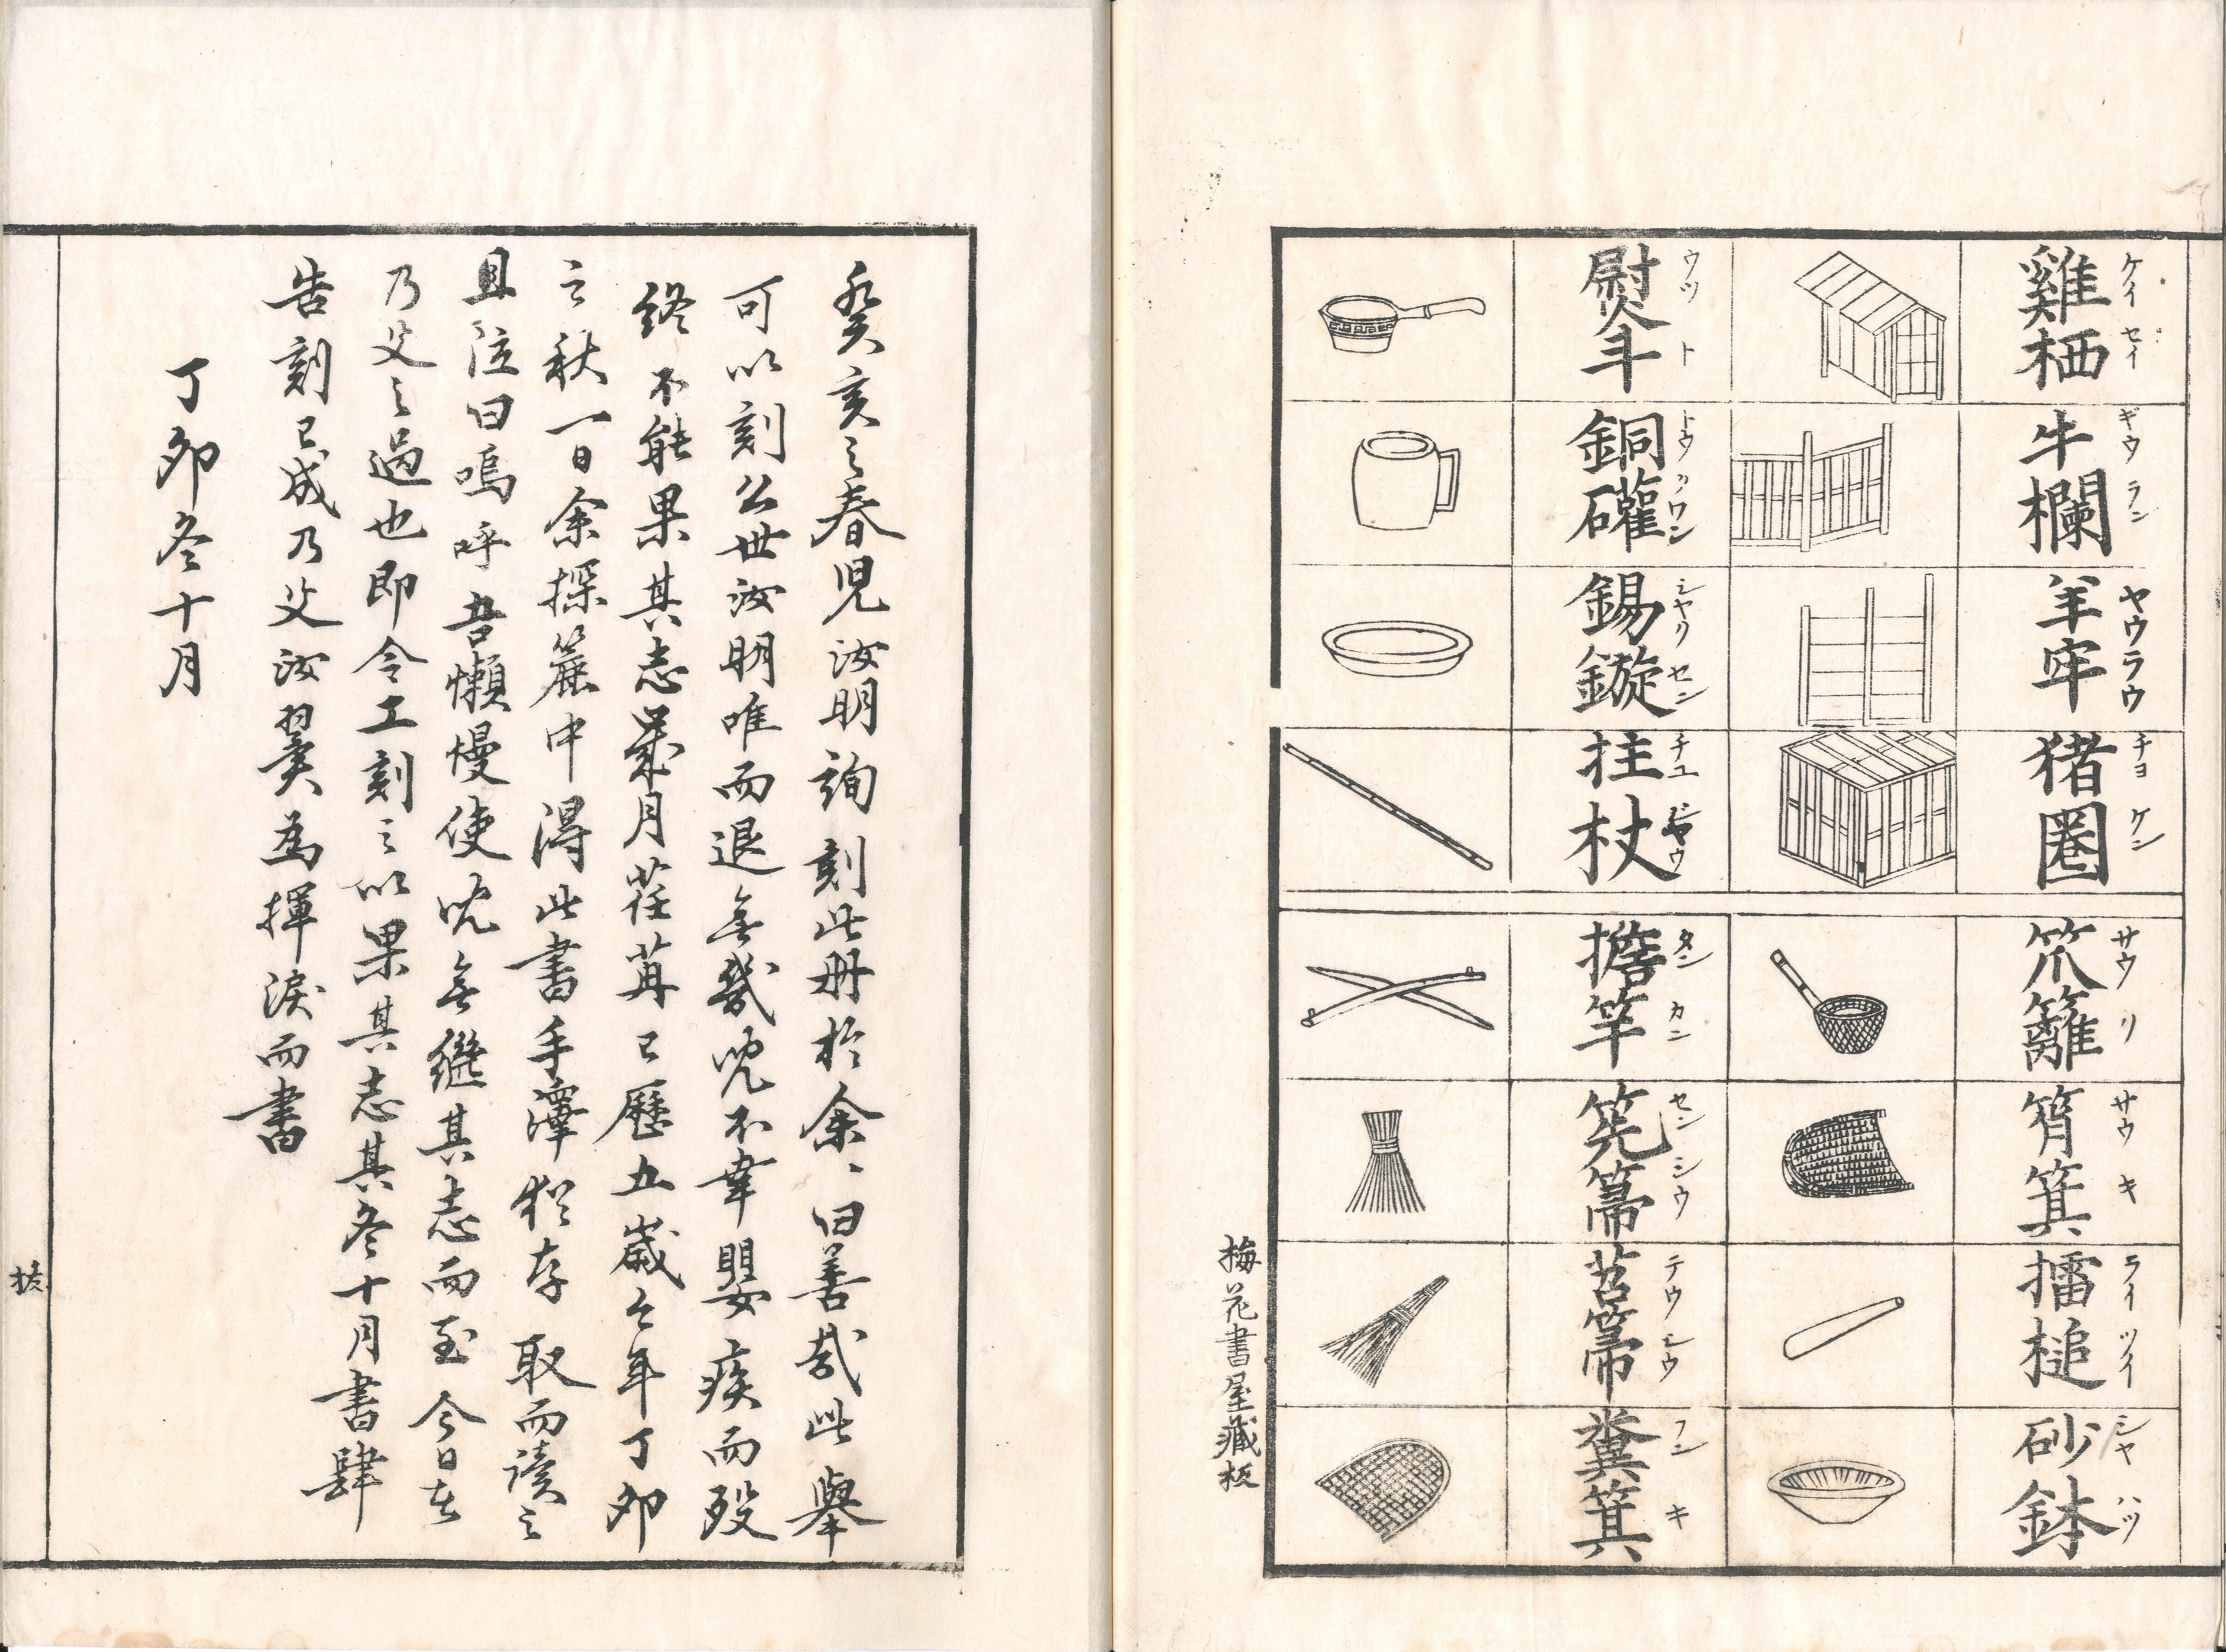 雞栖 ケイ セイ
牛欄 ギウ ラン
羊牢 ヤウラウ
猪圈 チヨ ケン
笊籬 サウ リ
筲箕 サウ キ
擂槌 ライ ツイ
砂鉢 シヤ ハツ
熨斗 ウツ ト
銅礶 トウ クワン
錫鏇 シヤク セン
拄杖 チユ ヂヤウ
擔竿 タン カン
筅箒 セン シウ
苕箒 テウ シウ
糞箕 フン キ
梅花書屋藏板
癸亥之春児汝明詢刻此册於余〻曰善哉此舉
可以刻公世汝明唯而退無幾児不幸嬰疾而歿
終不能果其志歳月荏苒已歴五歳今年丁卯
之秋一日余探簏中得此書手澤猶存取而讀之
且泣曰嗚呼吾懶慢使児無継其志而至今日在
乃父之過也即令工刻之以果其志其冬十月書肆
告刻已成乃父汝翼為揮淚而書
丁卯冬十月